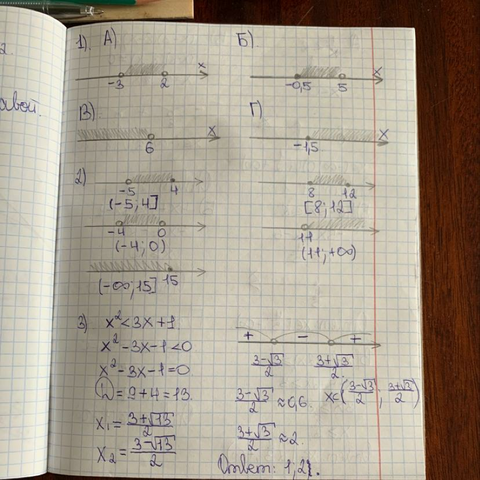 авой.
1). А)
x
-3 2
Б)
x
-0,5 5
В)
x
6
Г)
x
-1,5
2)
-5 4
(-5; 4]
8 12
[8; 12]
-4 0
(-4; 0)
11
(11; +∞)
15
(-∞; 15]
3) x² < 3x + 1
x² - 3x - 1 < 0
x² - 3x - 1 = 0
D = 9 + 4 = 13.
x₁ = (3+√13)/2
x₂ = (3-√13)/2
+ - +
(3-√3)/2 (3+√3)/2.
(3-√3)/2 ≈ 0,6. x∈((3-√3)/2; (3+√3)/2)
(3+√3)/2 ≈ 2.
Ответ: 1, 2.